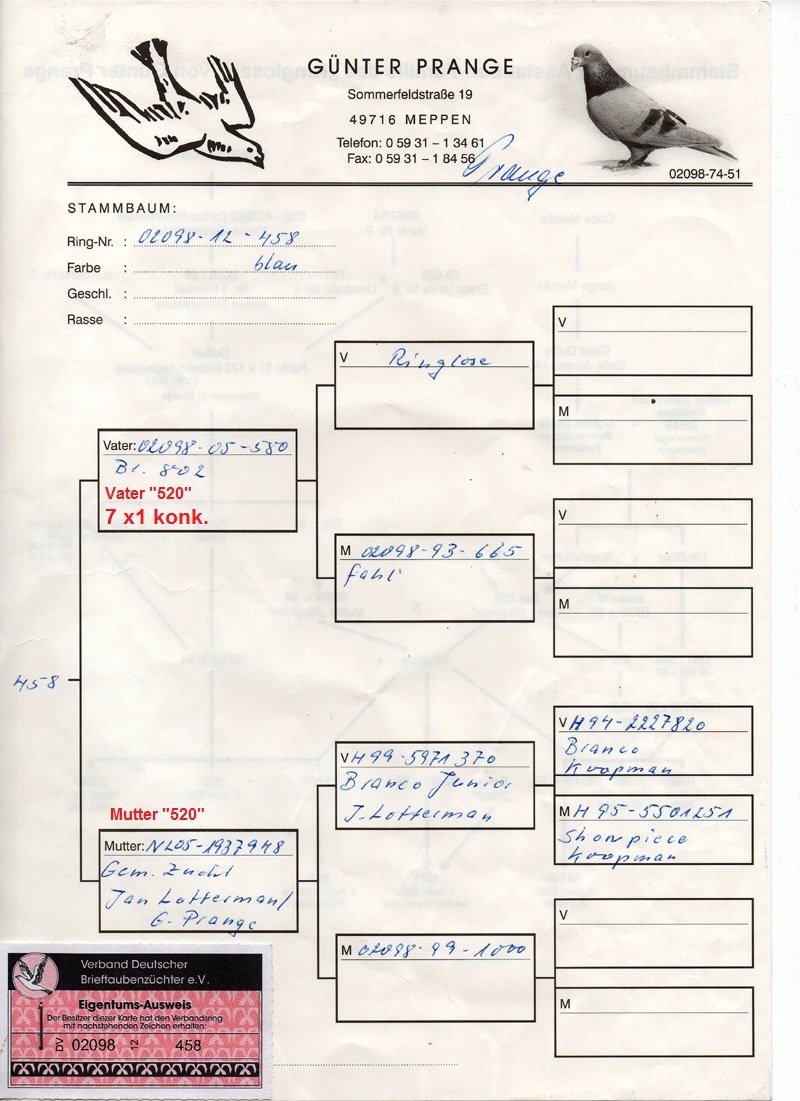 GÜNTER PRANGE
Sommerfeldstraße 19
49716 MEPPEN
Telefon: 0 59 31 – 1 34 61
Fax: 0 59 31 – 1 84 56
Prange
02098-74-51
STAMMBAUM:
Ring-Nr. : 02098-12-458
Farbe : blau
Geschl. :
Rasse :
V
V Ringlose
M
Vater: 02098-05-550
Br. 802
Vater "520"
7 x1 konk.
V
M 02098-93-665
fahl
M
458
V H94-2227820
Branco
Koopman
V H99-5971370
Branco Junior
J. Lotterman
M H95-5501251
Showpiece
Koopman
Mutter "520"
Mutter: NL05-1937948
Gem. Zucht
Jan Lotterman/
G. Prange
V
M 02098-99-1000
M
Verband Deutscher
Brieftaubenzüchter e.V.
Eigentums-Ausweis
Der Besitzer dieser Karte hat den Verbandsring
mit nachstehenden Zeichen erhalten:
DV 02098 12 458